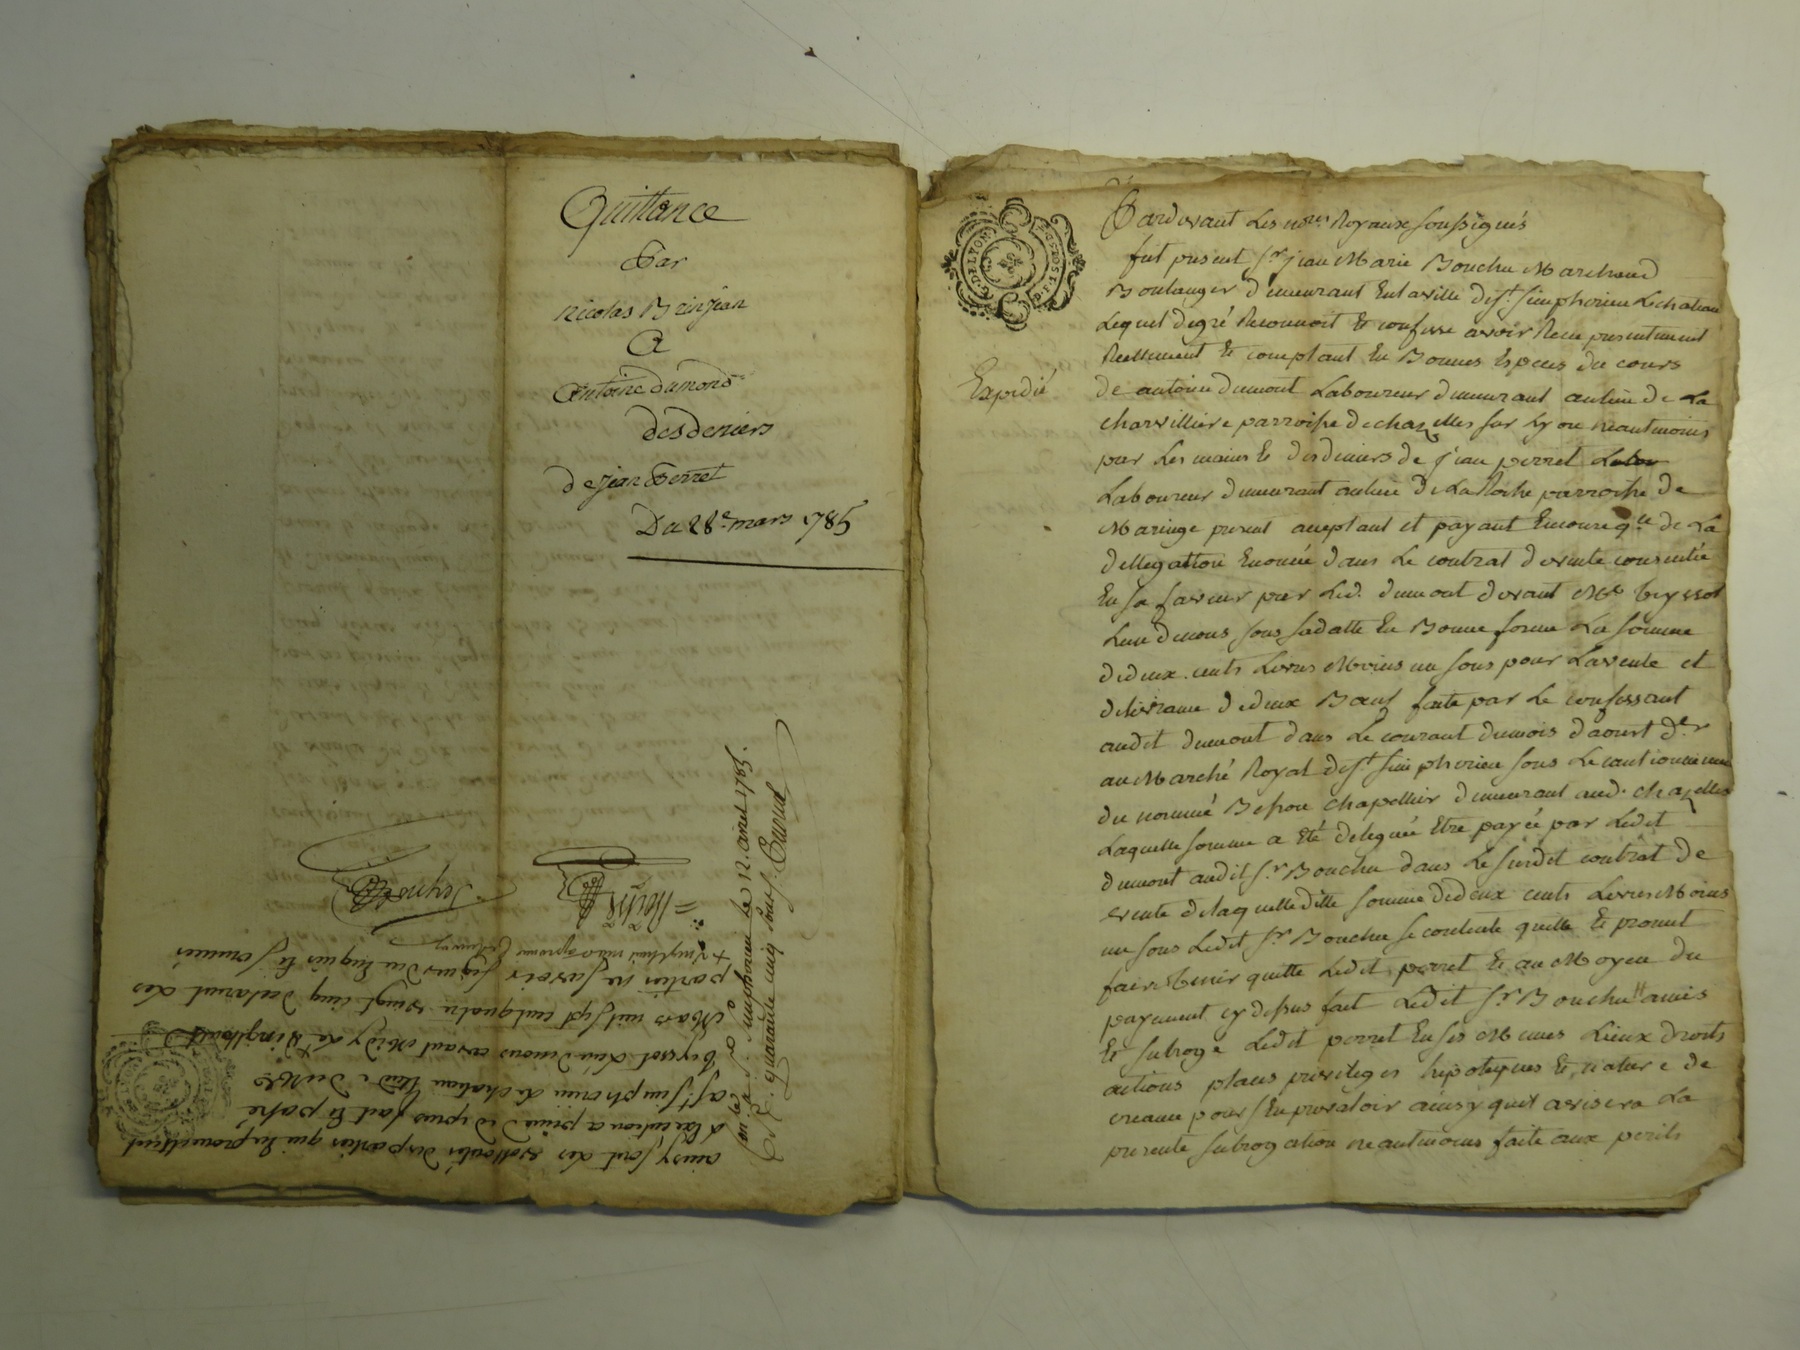 Quittance
Par
nicolas Bainjean
A
Antoine dumond
des deniers
de jean Perret
Du 28e mars 1785
ainsy sont les vollontés des parties qui les promettent
a peine d depens fait et passé
a St. simphorien le chateau Etude de Me
teyssot L'un de nous avant Midy le vingthuit
Mars mil sept cent quatre vingt cinq declarant les
parties ne savoir signer de ce Enquis et sommés
teyssot
con.lé a St. simphorien le 12. avril 1785.
R. quarante cinq sous six
G. DE LYON
Expedié
Pardevant Les nores. Royaux soussignés
fut present sr. jean Marie Bouchu Marchand
Boulanger demeurant En la ville de St. simphorien Le chateau
Lequel de gré Reconnoit Et confesse avoir Receu presentement
Reellement Et comptant En Bonnes Especes du cours
de antoine dumont Laboureur demeurant au lieu de La
charvilliere parroisse de chazelles sur Lyon neantmoins
par Les mains Et des deniers de jean perret Labou
Laboureur demeurant au lieu de La Roche parroisse de
Maringe present acceptant et payant En conseqce. de La
dellegation Enoncée dans Le contrat de vente consentie
En sa faveur par Led. dumont devant Me teyssot
L'un de nous sous sa datte En Bonne forme La somme
de deux cents Livres Moins un sous pour La vente et
delivrance de deux Bœuf faite par Le confessant
audit dumont dans Le courant du mois d'aoust der
au Marché Royal de St. simphorien sous Le cautionnement
du nommé Besson chapellier demeurant aud. chazelles
Laquelle somme a Eté deleguée Etre payée par Ledit
dumont audit sr. Bouchu dans Le susdit contrat de
vente de laquelle ditte somme de deux cents Livres Moins
un sous Ledit sr. Bouchu se contente quitte Et promet
faire tenir quitte Ledit perret Et au Moyen du
payement cy dessus fait Ledit sr. Bouchu a mis
Et subrogé Ledit perret En ses Memes Lieux droits
actions places privileges hipoteques Et nature de
creance pour s'En prevaloir ainsy quil avisera La
presente subrogation neantmoins faite aux perils